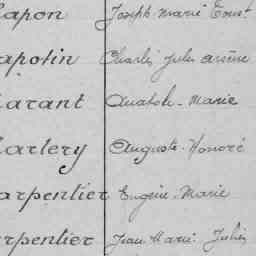 lapon Joseph Marie Ernest
apotin Charles Jules Arsène
arant Anatole-Marie
artery Auguste-Honoré
arpentier Eugène-Marie
rpentier Jean Marie Julien